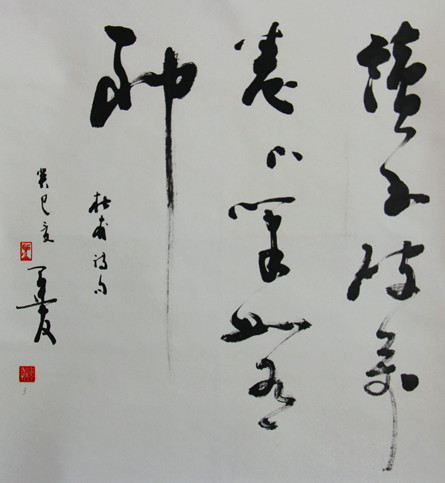 讀書破萬
卷下筆如有
神
杜甫詩句
癸巳夏